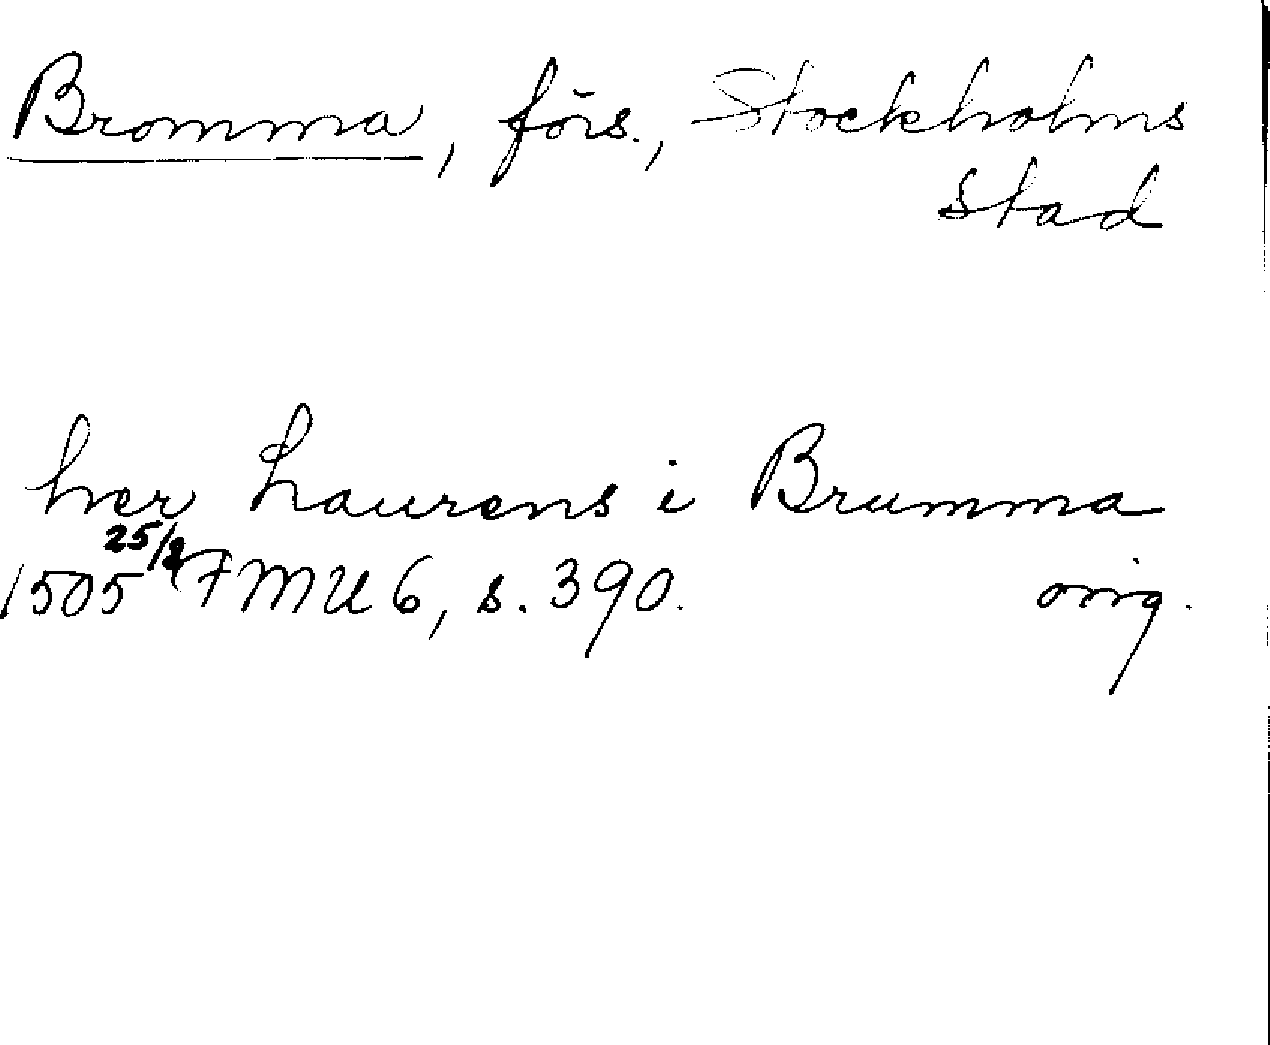 Bromma, förs., Stockholms
stad
her Laurens i Brumma
25/2
1505 FMU 6, s. 390. orig.